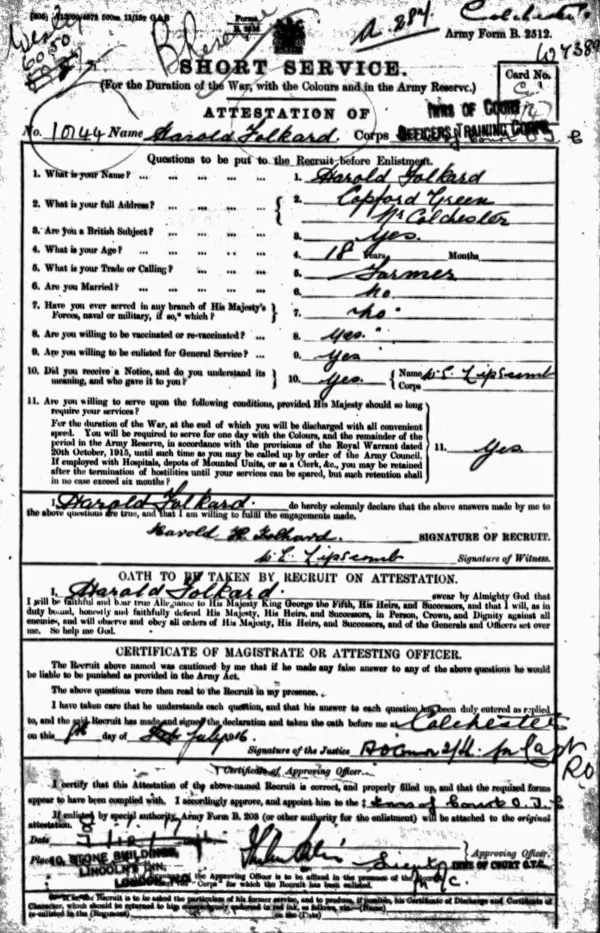 Army Form B. 2512.
Colchester
W 4389
A. 284
Card No.
SHORT SERVICE.
(For the Duration of the War, with the Colours and in the Army Reserve.)
ATTESTATION OF
INNS OF COURT
OFFICERS TRAINING CORPS
No. 10144 Name Harold Folkard. Corps
Questions to be put to the Recruit before Enlistment.
1. What is your Name? ... ... ... ... 1. Harold Folkard
2. What is your full Address? ... ... ... { 2. Copford Green
Nr Colchester
3. Are you a British Subject? ... ... ... 3. Yes.
4. What is your Age? ... ... ... ... 4. 18 Years Months.
5. What is your Trade or Calling? ... ... ... 5. Farmer
6. Are you Married? ... ... ... ... 6. No
7. Have you ever served in any branch of His Majesty's
Forces, naval or military, if so,* which? } 7. No
8. Are you willing to be vaccinated or re-vaccinated? ... 8. Yes.
9. Are you willing to be enlisted for General Service? ... 9. Yes
10. Did you receive a Notice, and do you understand its
meaning, and who gave it to you? } 10. Yes. { Name W. L. Lipscomb
Corps
11. Are you willing to serve upon the following conditions, provided His Majesty should so long
require your services?
For the duration of the War, at the end of which you will be discharged with all convenient
speed. You will be required to serve for one day with the Colours, and the remainder of the
period in the Army Reserve, in accordance with the provisions of the Royal Warrant dated
20th October, 1915, until such time as you may be called up by order of the Army Council.
If employed with Hospitals, depots of Mounted Units, or as a Clerk, &c., you may be retained
after the termination of hostilities until your services can be spared, but such retention shall
in no case exceed six months?
11. Yes.
I, Harold Folkard. do hereby solemnly declare that the above answers made by me to
the above questions are true, and that I am willing to fulfil the engagements made.
Harold H. Folkard. SIGNATURE OF RECRUIT.
W. L. Lipscomb Signature of Witness.
OATH TO BE TAKEN BY RECRUIT ON ATTESTATION.
I, Harold Folkard. swear by Almighty God that
I will be faithful and bear true Allegiance to His Majesty King George the Fifth, His Heirs, and Successors, and that I will, as in
duty bound, honestly and faithfully defend His Majesty, His Heirs, and Successors, in Person, Crown, and Dignity against all
enemies, and will observe and obey all orders of His Majesty, His Heirs and Successors, and of the Generals and Officers set over
me. So help me God.
CERTIFICATE OF MAGISTRATE OR ATTESTING OFFICER.
The Recruit above named was cautioned by me that if he made any false answer to any of the above questions he would
be liable to be punished as provided in the Army Act.
The above questions were then read to the Recruit in my presence.
I have taken care that he understands each question, and that his answer to each question has been duly entered as replied
to, and the said Recruit has made and signed the declaration and taken the oath before me at Colchester
on this day of July 1916.
Signature of the Justice for Capt
RO
Certificate of Approving Officer.
I certify that this Attestation of the above-named Recruit is correct, and properly filled up, and that the required forms
appear to have been complied with. I accordingly approve, and appoint him to the ‡ Inns of Court O.T.C
If enlisted by special authority, Army Form B. 203 (or other authority for the enlistment) will be attached to the original
attestation.
Date
Approving Officer.
Place 10, STONE BUILDINGS,
LINCOLN'S INN,
LONDON, W.C.
INNS OF COURT O.T.C.
the Approving Officer is to be affixed in the presence of the Recruit
"Corps" for which the Recruit has been enlisted.